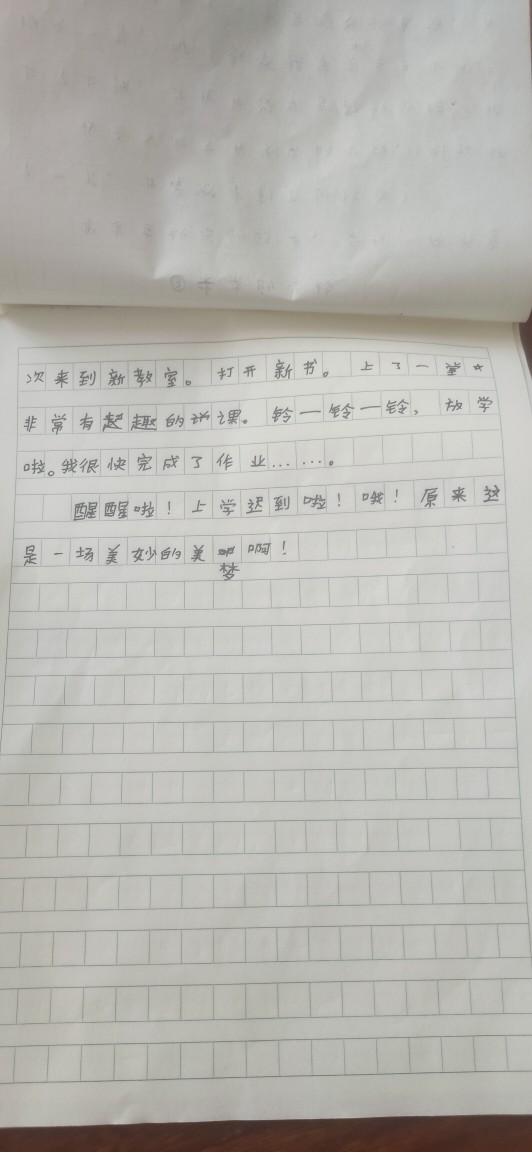 次来到新教室。打开新书。上了一堂
非常有趣的课。铃一铃一铃，放学
啦。我很快完成了作业……。
醒醒啦！上学迟到啦！哦！原来这
是一场美妙的美梦啊！